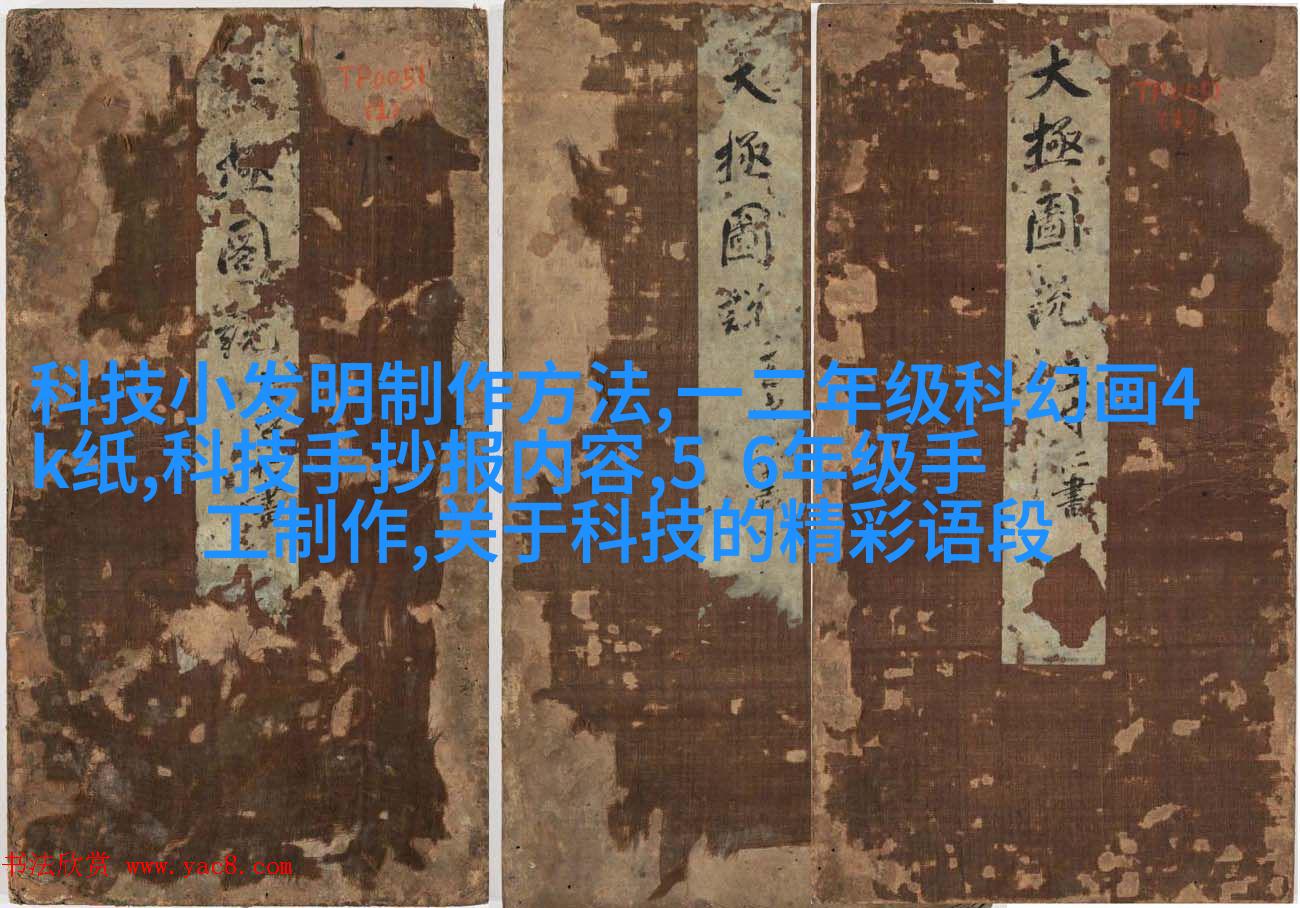 TP0051
(1)
極圖說
大極圖說
大極圖說
書
科技小发明制作方法,一二年级科幻画4
k纸,科技手抄报内容,5 6年级手
工制作,关于科技的精彩语段
书法欣赏 www.yac8.com